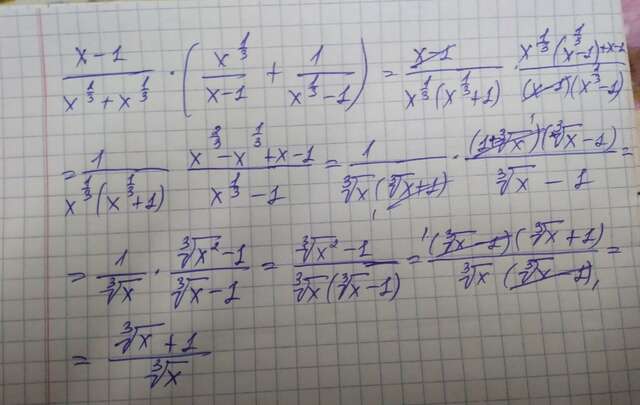 (x-1)/(x^(1/3) + x^(1/3)) · (x^(1/3)/(x-1) + 1/(x^(1/3) - 1)) = (x-1)/(x^(1/3)(x^(1/3)+1)) · (x^(1/3)(x^(1/3)-1)+x-1)/((x-1)(x^(1/3)-1))
= 1/(x^(1/3)(x^(1/3)+1)) · (x^(2/3) - x^(1/3) + x - 1)/(x^(1/3) - 1) = 1/(∛x(∛x+1)) · ((1+∛x)(∛x²-1))/(∛x - 1) =
= 1/∛x · (∛x²-1)/(∛x-1) = (∛x²-1)/(∛x(∛x-1)) = ((∛x-1)(∛x+1))/(∛x(∛x-1)) =
= (∛x+1)/∛x